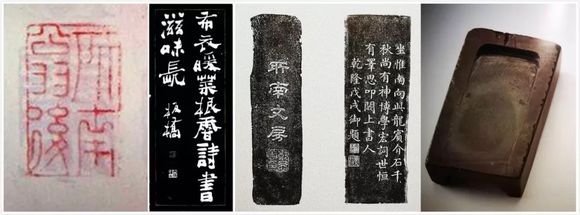 所南
翁後
布衣暖菜根香詩書
滋味長 板橋
所南文房
坐惟南向此龍賓介石千
秋尚有神博學宏詞世恒
有罕思叩闕上書人
乾隆戊戌御題